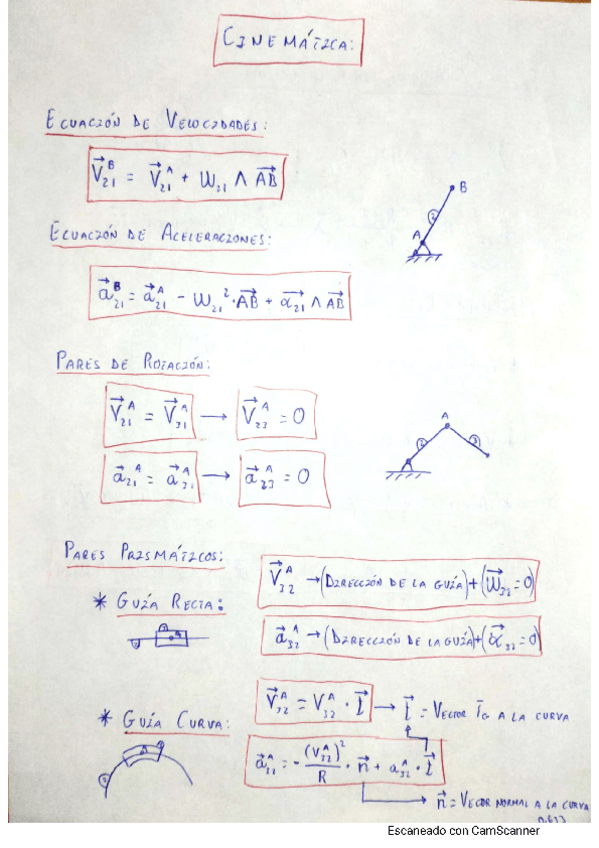 CINEMÁTICA:
ECUACIÓN DE VELOCIDADES:
V⃗₂₁ᴮ = V⃗₂₁ᴬ + W₂₁ ∧ AB⃗
B
2
A
ECUACIÓN DE ACELERACIONES:
a⃗₂₁ᴮ = a⃗₂₁ᴬ - W₂₁²·AB⃗ + α⃗₂₁ ∧ AB⃗
PARES DE ROTACIÓN:
V⃗₂₁ᴬ = V⃗₃₁ᴬ → V⃗₂₃ᴬ = 0
A
2 3
a⃗₂₁ᴬ = a⃗₃₁ᴬ → a⃗₂₃ᴬ = 0
PARES PRISMÁTICOS:
V⃗₃₂ᴬ → (DIRECCIÓN DE LA GUÍA) + (W⃗₃₂ = 0)
* GUÍA RECTA:
a⃗₃₂ᴬ → (DIRECCIÓN DE LA GUÍA) + (α⃗₃₂ = 0)
V⃗₃₂ᴬ = V₃₂ᴬ · t⃗ → t⃗ = VECTOR TG A LA CURVA
* GUÍA CURVA:
a⃗₃₂ᴬ = - (V₃₂ᴬ)²/R · n⃗ + a₃₂ᴬ · t⃗
n⃗ = VECTOR NORMAL A LA CURVA
Escaneado con CamScanner